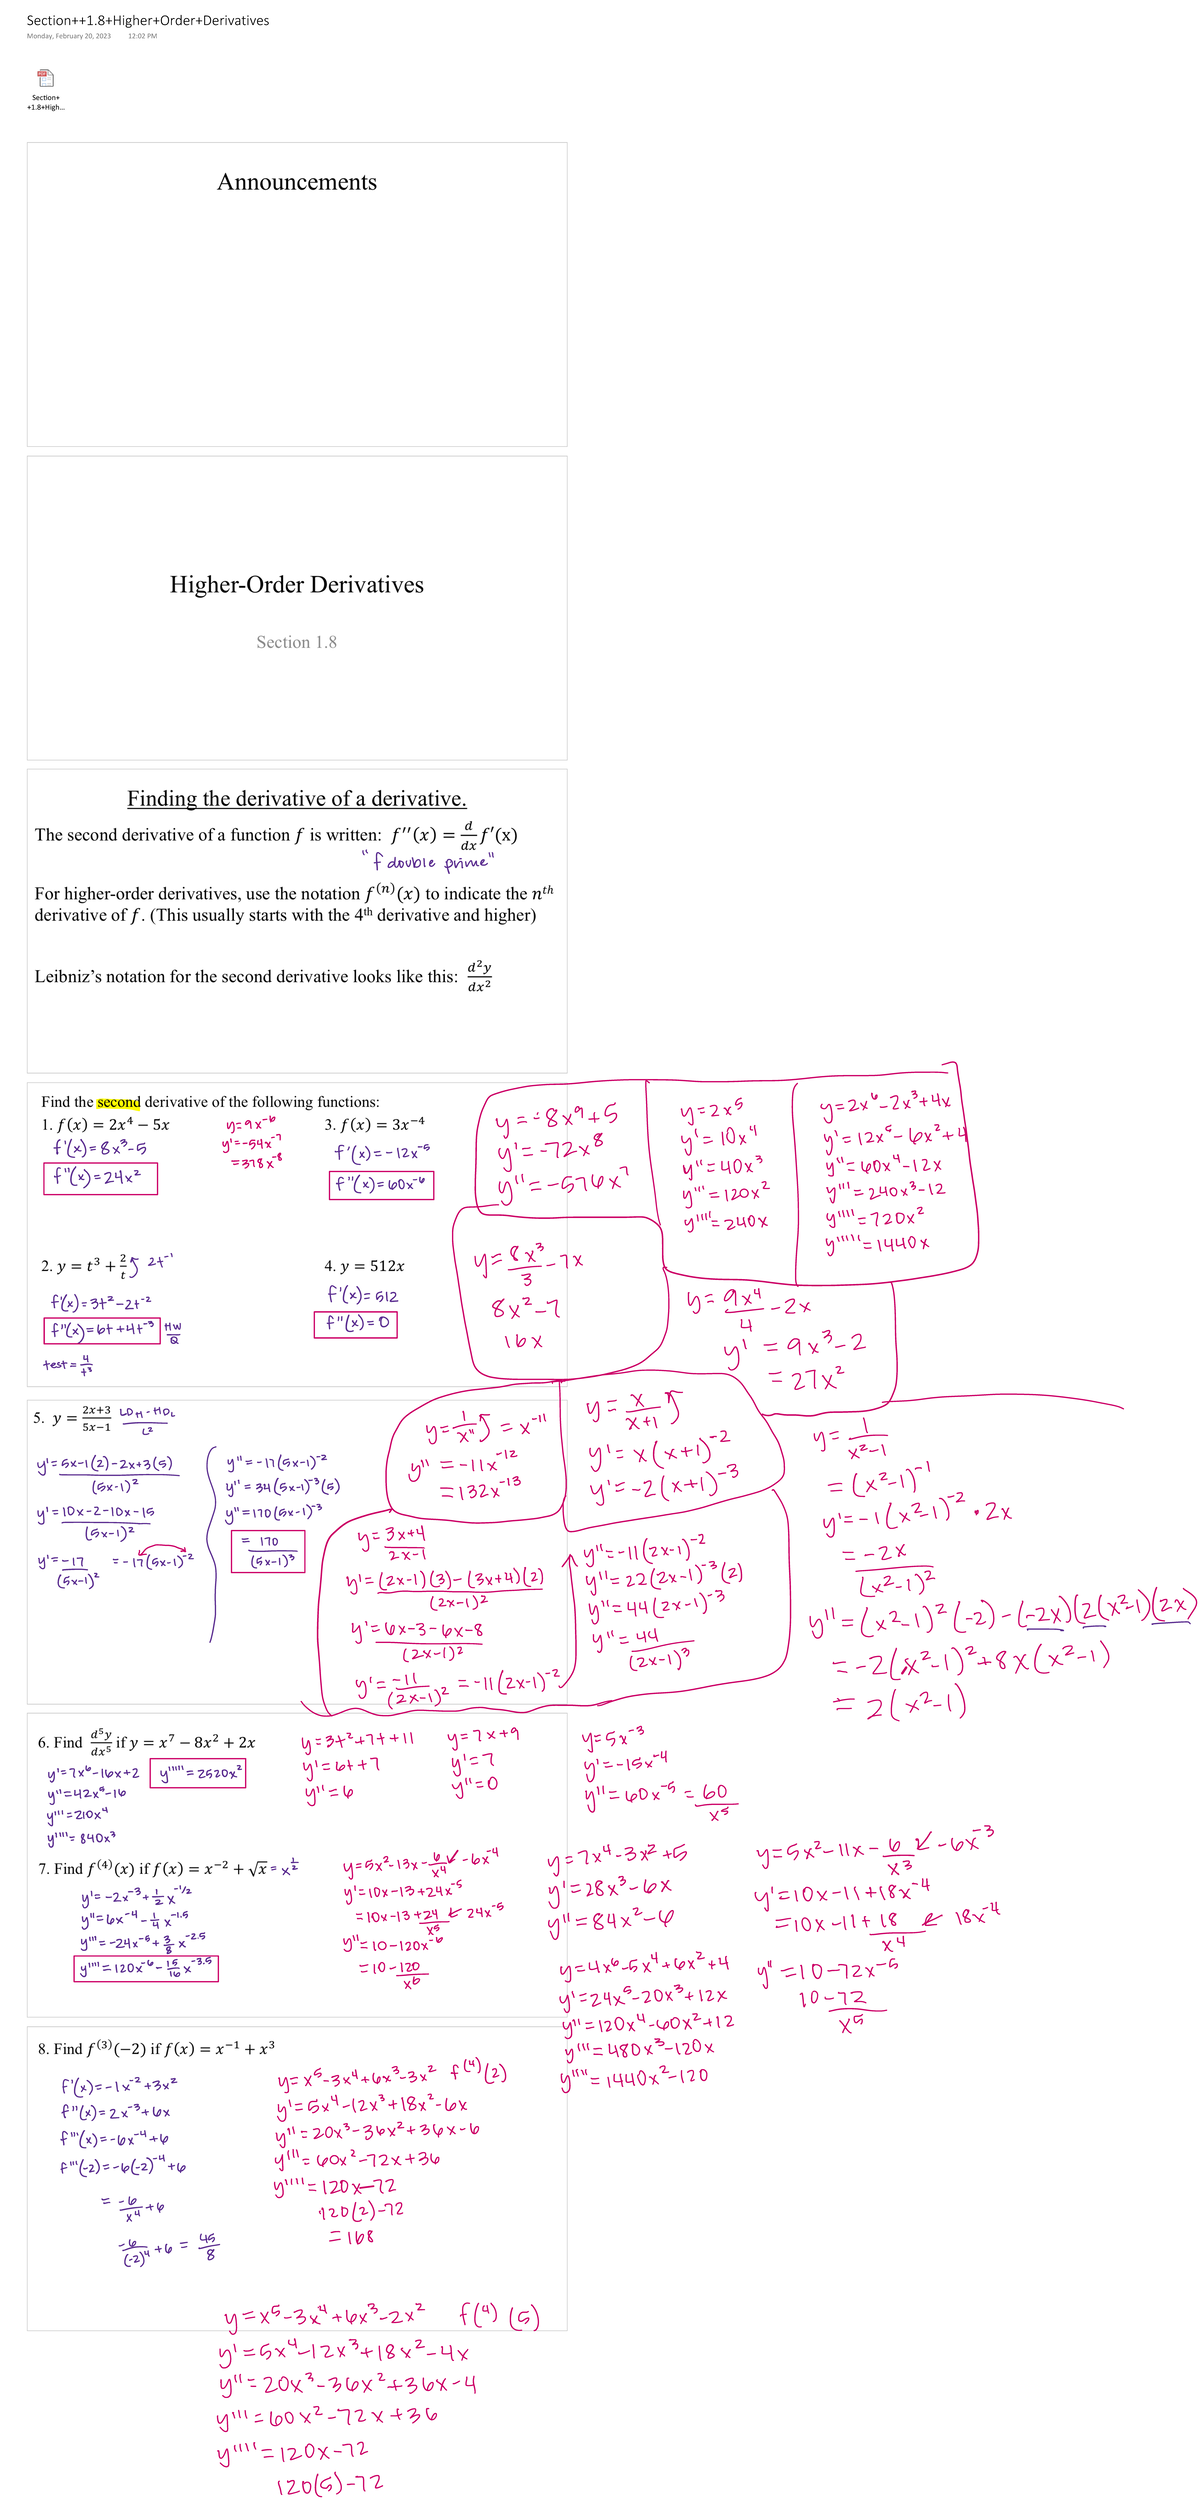 Section++1.8+Higher+Order+Derivatives
Monday, February 20, 2023 12:02 PM
Section+
+1.8+High...
Announcements
Higher-Order Derivatives
Section 1.8
Finding the derivative of a derivative.
The second derivative of a function f is written: f''(x) = d/dx f'(x)
"f double prime"
For higher-order derivatives, use the notation f^(n)(x) to indicate the n^th
derivative of f. (This usually starts with the 4th derivative and higher)
Leibniz's notation for the second derivative looks like this: d²y/dx²
Find the second derivative of the following functions:
1. f(x) = 2x⁴ − 5x
f'(x)=8x³-5
f''(x)=24x²
y=9x⁻⁶
y'=-54x⁻⁷
=378x⁻⁸
3. f(x) = 3x⁻⁴
f'(x)=-12x⁻⁵
f''(x)=60x⁻⁶
y=-8x⁹+5
y'=-72x⁸
y''=-576x⁷
y=2x⁵
y'=10x⁴
y''=40x³
y'''=120x²
y''''=240x
y=2x⁶-2x³+4x
y'=12x⁵-6x²+4
y''=60x⁴-12x
y'''=240x³-12
y''''=720x²
y'''''=1440x
2. y = t³ + 2/t 2t⁻¹
f'(x)=3t²-2t⁻²
f''(x)=6t+4t⁻³ HW/Q
test = 4/t³
4. y = 512x
f'(x)=512
f''(x)=0
y=8x³/3-7x
8x²-7
16x
y=9x⁴/4-2x
y'=9x³-2
=27x²
5. y = 2x+3/5x−1 LDH-HDL/L²
y'=5x-1(2)-2x+3(5)/(5x-1)²
y'=10x-2-10x-15/(5x-1)²
y'=-17/(5x-1)² =-17(5x-1)⁻²
y''=-17(5x-1)⁻²
y''=34(5x-1)⁻³(5)
y''=170(5x-1)⁻³
=170/(5x-1)³
y=1/x¹¹ =x⁻¹¹
y''=-11x⁻¹²
=132x⁻¹³
y=x/x+1
y'=x(x+1)⁻²
y'=-2(x+1)⁻³
y=1/x²-1
=(x²-1)⁻¹
y'=-1(x²-1)⁻²•2x
=-2x/(x²-1)²
y''=(x²-1)²(-2)-(-2x)(2(x²-1)(2x)
=-2(x²-1)²+8x(x²-1)
=2(x²-1)
y=3x+4/2x-1
y'=(2x-1)(3)-(3x+4)(2)/(2x-1)²
y'=6x-3-6x-8/(2x-1)²
y'=-11/(2x-1)²=-11(2x-1)⁻²
y''=-11(2x-1)⁻²
y''=22(2x-1)⁻³(2)
y''=44(2x-1)⁻³
y''=44/(2x-1)³
6. Find d⁵y/dx⁵ if y = x⁷ − 8x² + 2x
y'=7x⁶-16x+2
y'''''=2520x²
y''=42x⁵-16
y'''=210x⁴
y''''=840x³
y=3t²+7t+11
y'=6t+7
y''=6
y=7x+9
y'=7
y''=0
y=5x⁻³
y'=-15x⁻⁴
y''=60x⁻⁵=60/x⁵
7. Find f⁽⁴⁾(x) if f(x) = x⁻² + √x =x^1/2
y'=-2x⁻³+1/2x^-1/2
y''=6x⁻⁴-1/4x^-1.5
y'''=-24x⁻⁵+3/8x^-2.5
y''''=120x⁻⁶-15/16x^-3.5
y=5x²-13x-6/x⁴ -6x⁻⁴
y'=10x-13+24x⁻⁵
=10x-13+24/x⁵ 24x⁻⁵
y''=10-120x⁻⁶
=10-120/x⁶
y=7x⁴-3x²+5
y'=28x³-6x
y''=84x²-6
y=5x²-11x-6/x³ -6x⁻³
y'=10x-11+18x⁻⁴
=10x-11+18/x⁴ 18x⁻⁴
y''=10-72x⁻⁵
10-72/x⁵
y=4x⁶-5x⁴+6x²+4
y'=24x⁵-20x³+12x
y''=120x⁴-60x²+12
y'''=480x³-120x
y''''=1440x²-120
8. Find f⁽³⁾(−2) if f(x) = x⁻¹ + x³
f'(x)=-1x⁻²+3x²
f''(x)=2x⁻³+6x
f'''(x)=-6x⁻⁴+6
f'''(-2)=-6(-2)⁻⁴+6
=-6/x⁴+6
-6/(-2)⁴+6=45/8
y=x⁵-3x⁴+6x³-3x² f⁽⁴⁾(2)
y'=5x⁴-12x³+18x²-6x
y''=20x³-36x²+36x-6
y'''=60x²-72x+36
y''''=120x-72
120(2)-72
=168
y=x⁵-3x⁴+6x³-2x² f⁽⁴⁾(5)
y'=5x⁴-12x³+18x²-4x
y''=20x³-36x²+36x-4
y'''=60x²-72x+36
y''''=120x-72
120(5)-72